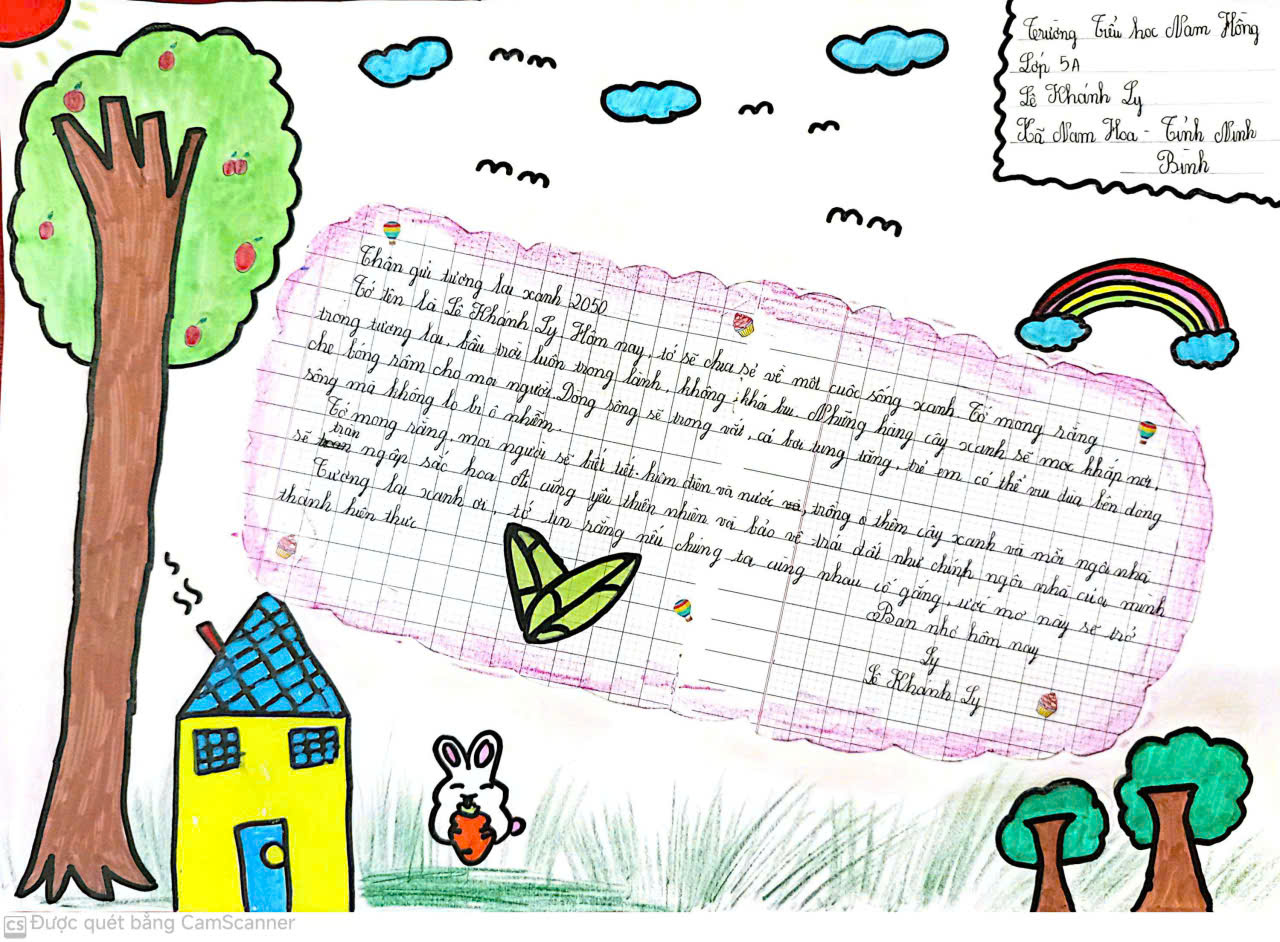 Trường Tiểu học Nam Hồng
Lớp 5A
Lê Khánh Ly
Xã Nam Hoa - Tỉnh Ninh
Bình
Thân gửi tương lai xanh 2050
Tớ tên là Lê Khánh Ly Hôm nay, tớ sẽ chia sẻ về một cuộc sống xanh. Tớ mong rằng
trong tương lai, bầu trời luôn trong lành, không khói bụi. Những hàng cây xanh sẽ mọc khắp nơi,
che bóng râm cho mọi người. Dòng sông sẽ trong vắt, cá bơi tung tăng, trẻ em có thể vui đùa bên dòng
sông mà không lo bị ô nhiễm.
Tớ mong rằng, mọi người sẽ biết tiết kiệm điện và nước, trồng thêm cây xanh và mỗi ngôi nhà
sẽ tràn ngập sắc hoa để cùng yêu thiên nhiên và bảo vệ trái đất như chính ngôi nhà của mình
Tương lai xanh ơi, tớ tin rằng nếu chúng ta cùng nhau cố gắng, ước mơ này sẽ trở
thành hiện thực
Bạn nhỏ hôm nay
Ly
Lê Khánh Ly
CS Được quét bằng CamScanner